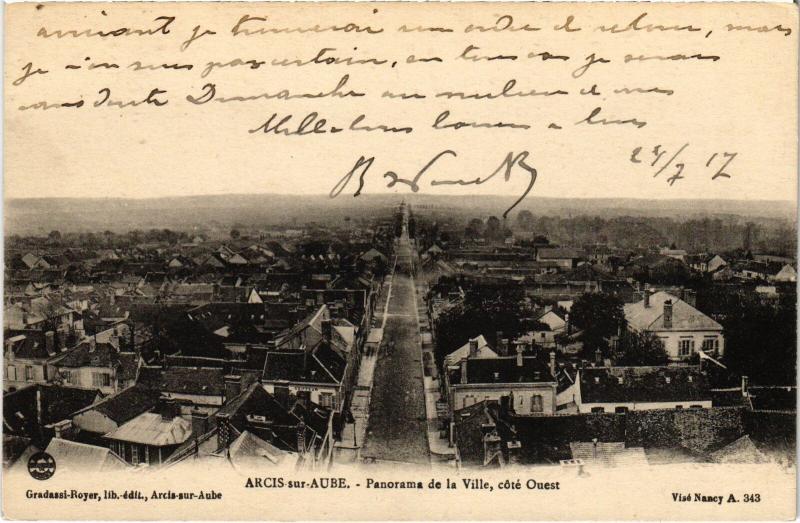 arrivant je trouverai un ordre de retour, mais
je n'en suis pas certain, en tous cas je serais
sans doute Dimanche au milieu de mes
Mille bons baisers à tous
24/7 17
ARCIS-sur-AUBE. - Panorama de la Ville, côté Ouest
Gradassi-Royer, lib.-édit., Arcis-sur-Aube
Visé Nancy A. 343